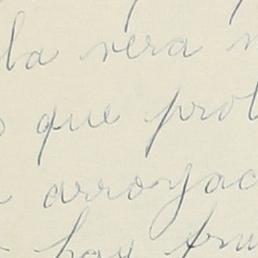 la vera
que prob
arroyac
hay fru